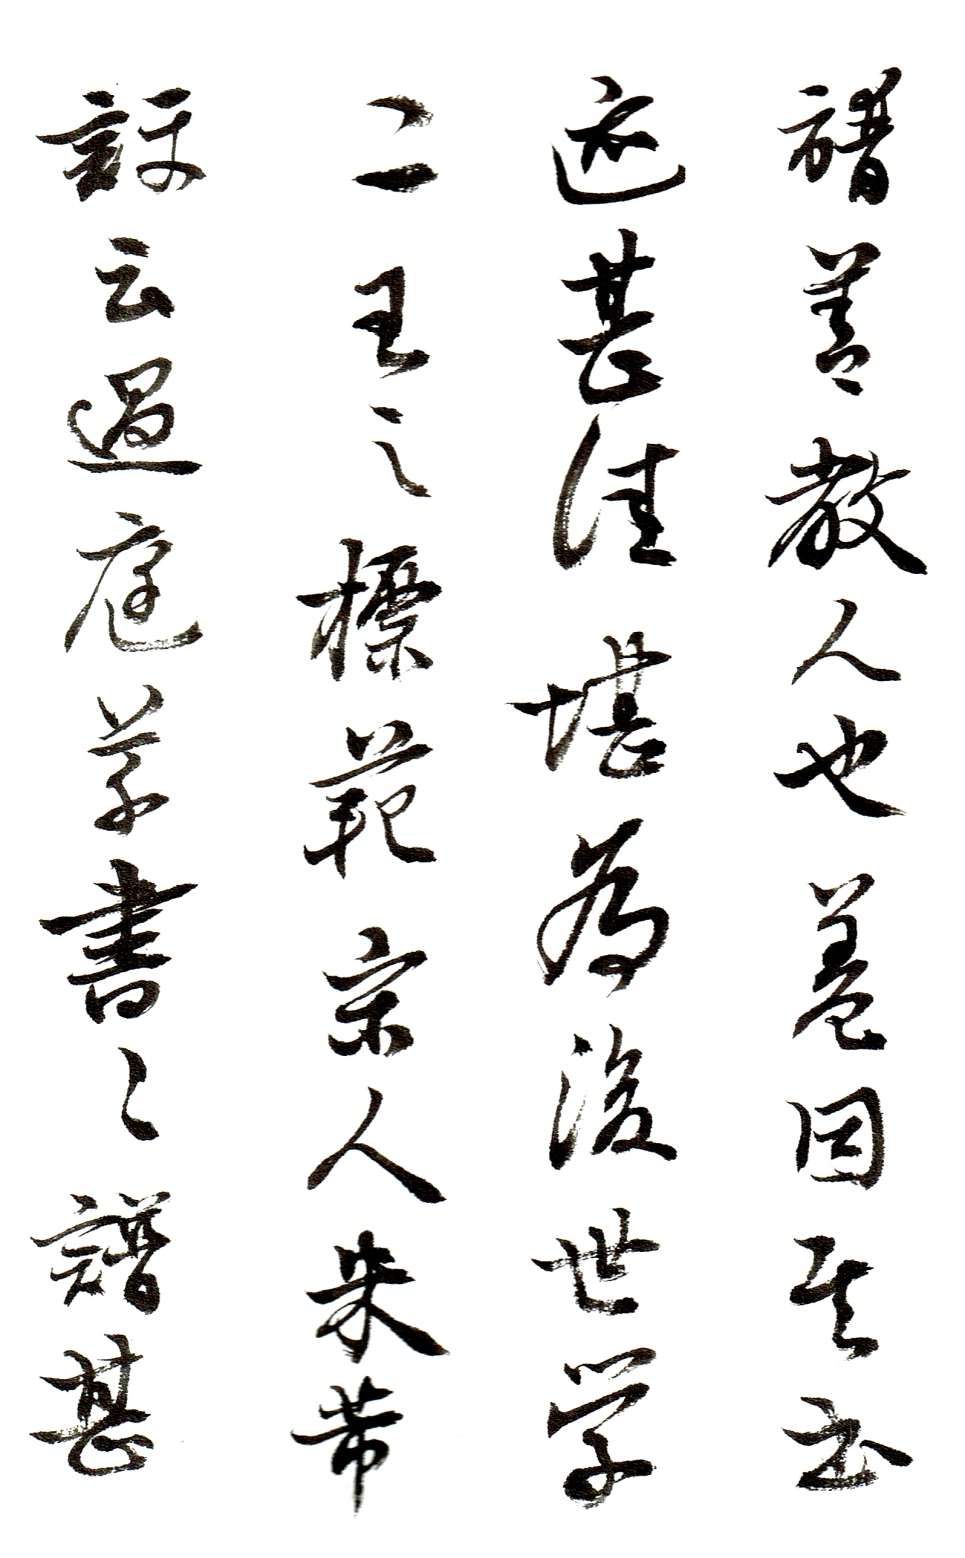 譜善教人也蓋因其書
迹甚佳堪為後世學
二王之標範宋人米芾
評云過庭草書〻譜甚